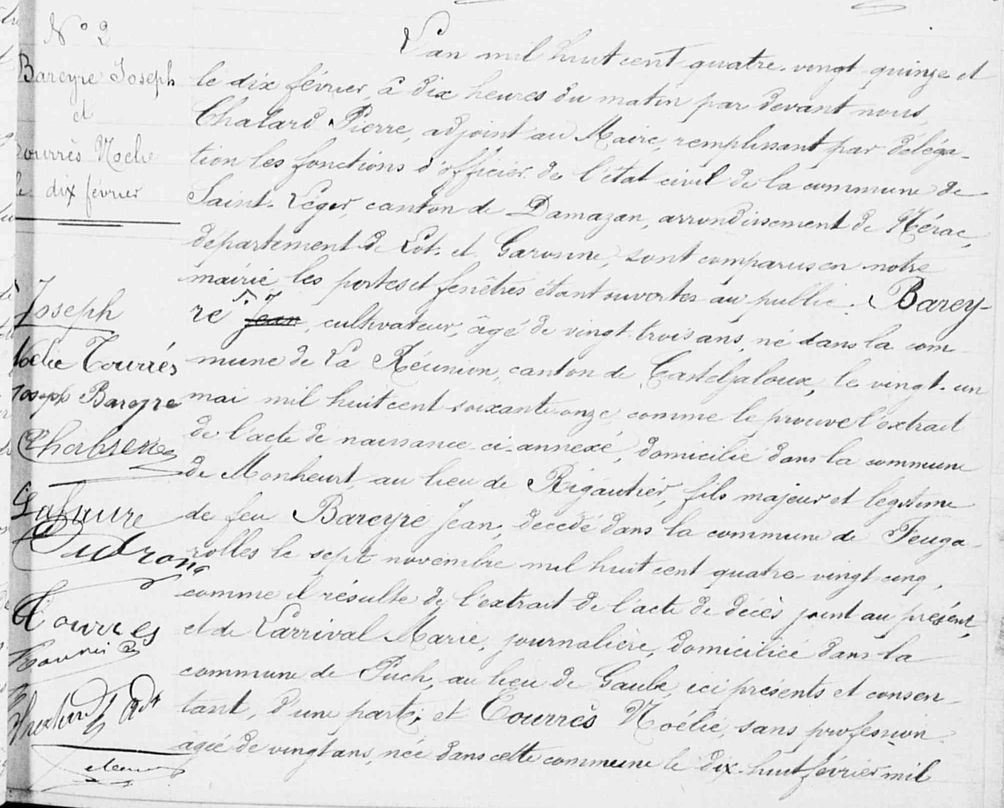 N° 2
Bareyre Joseph
et
Tourrès Noélie
le dix février
Joseph
Noélie Tourrès
Joseph Bareyre
Tourres
L'an mil huit cent quatre-vingt quinze et
le dix février, à dix heures du matin par devant nous,
Chalard Pierre, adjoint au Maire, remplissant par déléga-
tion les fonctions d'officier de l'état civil de la commune de
Saint-Léger, canton de Damazan, arrondissement de Nérac,
département de Lot-et-Garonne, sont comparus en notre
mairie, les portes et fenêtres étant ouvertes au public. Barey-
re Jean, cultivateur, âgé de vingt-trois ans, né dans la com-
mune de La Réunion, canton de Casteljaloux, le vingt-un
mai mil huit cent soixante-onze, comme le prouve l'extrait
de l'acte de naissance ci-annexé, domicilié dans la commune
de Monheurt au lieu de Rigautier, fils majeur et légitime
de feu Bareyre Jean, décédé dans la commune de Feuga-
rolles le sept novembre mil huit cent quatre-vingt cinq,
comme il résulte de l'extrait de l'acte de décès joint au présent,
et de Larrival Marie, journalière, domiciliée dans la
commune de Puch, au lieu de Gaube, ici présents et consen-
tant, d'une part; et Tourrès Noélie, sans profession
agée de vingt ans, née dans cette commune le dix-huit février mil